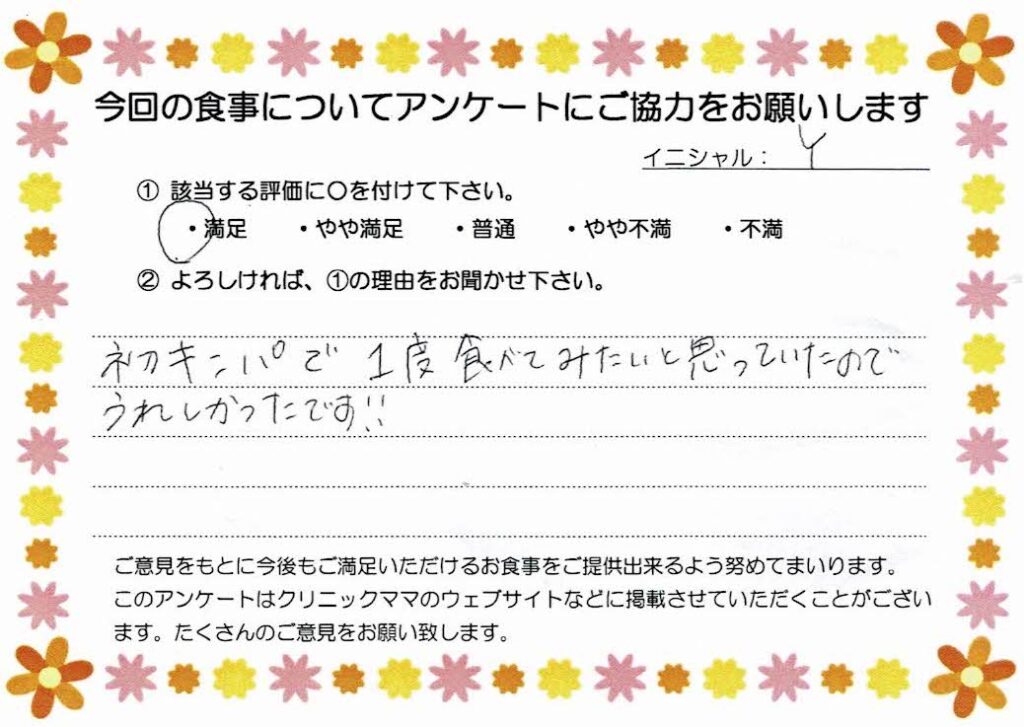 今回の食事についてアンケートにご協力をお願いします
イニシャル： Y
① 該当する評価に〇を付けて下さい。
・満足 ・やや満足 ・普通 ・やや不満 ・不満
② よろしければ、①の理由をお聞かせ下さい。
初キンパで1度食べてみたいと思っていたので
うれしかったです!!
ご意見をもとに今後もご満足いただけるお食事をご提供出来るよう努めてまいります。
このアンケートはクリニックママのウェブサイトなどに掲載させていただくことがござい
ます。たくさんのご意見をお願い致します。